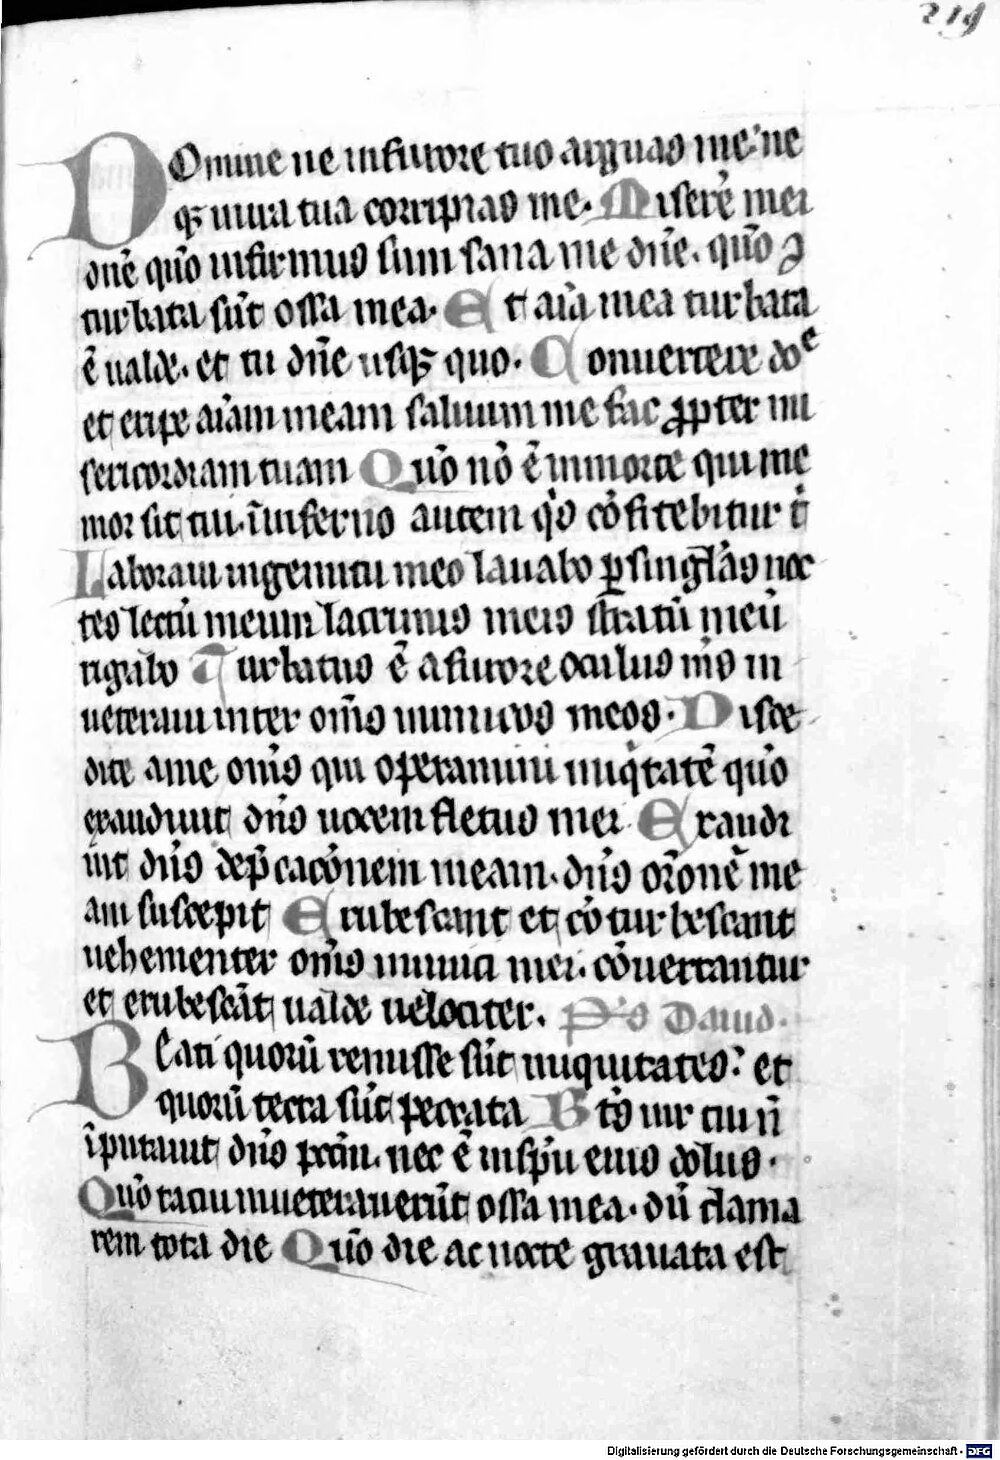 219
Domine ne in furore tuo arguas me: ne
qꝫ in ira tua corripias me. Miserẽ mei
dñe qũo infirmus sum sana me dñe. qũo ꝯ
turbata sũt ossa mea. Et aĩa mea turbata
ẽ ualde. et tu dñe usqꝫ quo. Conuertere doᵉ
et eripe aĩam meam saluum me fac ꝓpter mi
sericordiam tuam Qũo nõ ẽ in morte qui me
mor sit tui. ĩ inferno autem qͥs cõfitebitur tͥ
Laboraui in gemitu meo lauabo ꝑ singl̃as noc
tes lectũ meum lacrimis meis stratũ meũ
rigabo Turbatus ẽ a furore oculus mĩs in
ueteraui inter om̃s inimicos meos. Disce
dite a me om̃s qui operamini iniqͥtatẽ qũo
exaudiuit dñs uocem fletus mei. Exaudi
uit dñs dep̃cacõnem meam. dñs or̃onẽ me
am suscepit Erubescant et cõturbescant
uehementer om̃s inimici mei. cõuertantur
et erubescãt ualde uelociter. P̃s Dauid.
Beati quorũ remisse sũt iniquitates: et
quorũ tecta sũt peccata Bt̃s uir cui ñ
ĩputauit dñs pcc̃m. nec ẽ in sp̃u eius dolus.
Qũo tacui inueterauerũt ossa mea. dũ clama
rem tota die Qũo die ac nocte grauata est
Digitalisierung gefördert durch die Deutsche Forschungsgemeinschaft - DFG